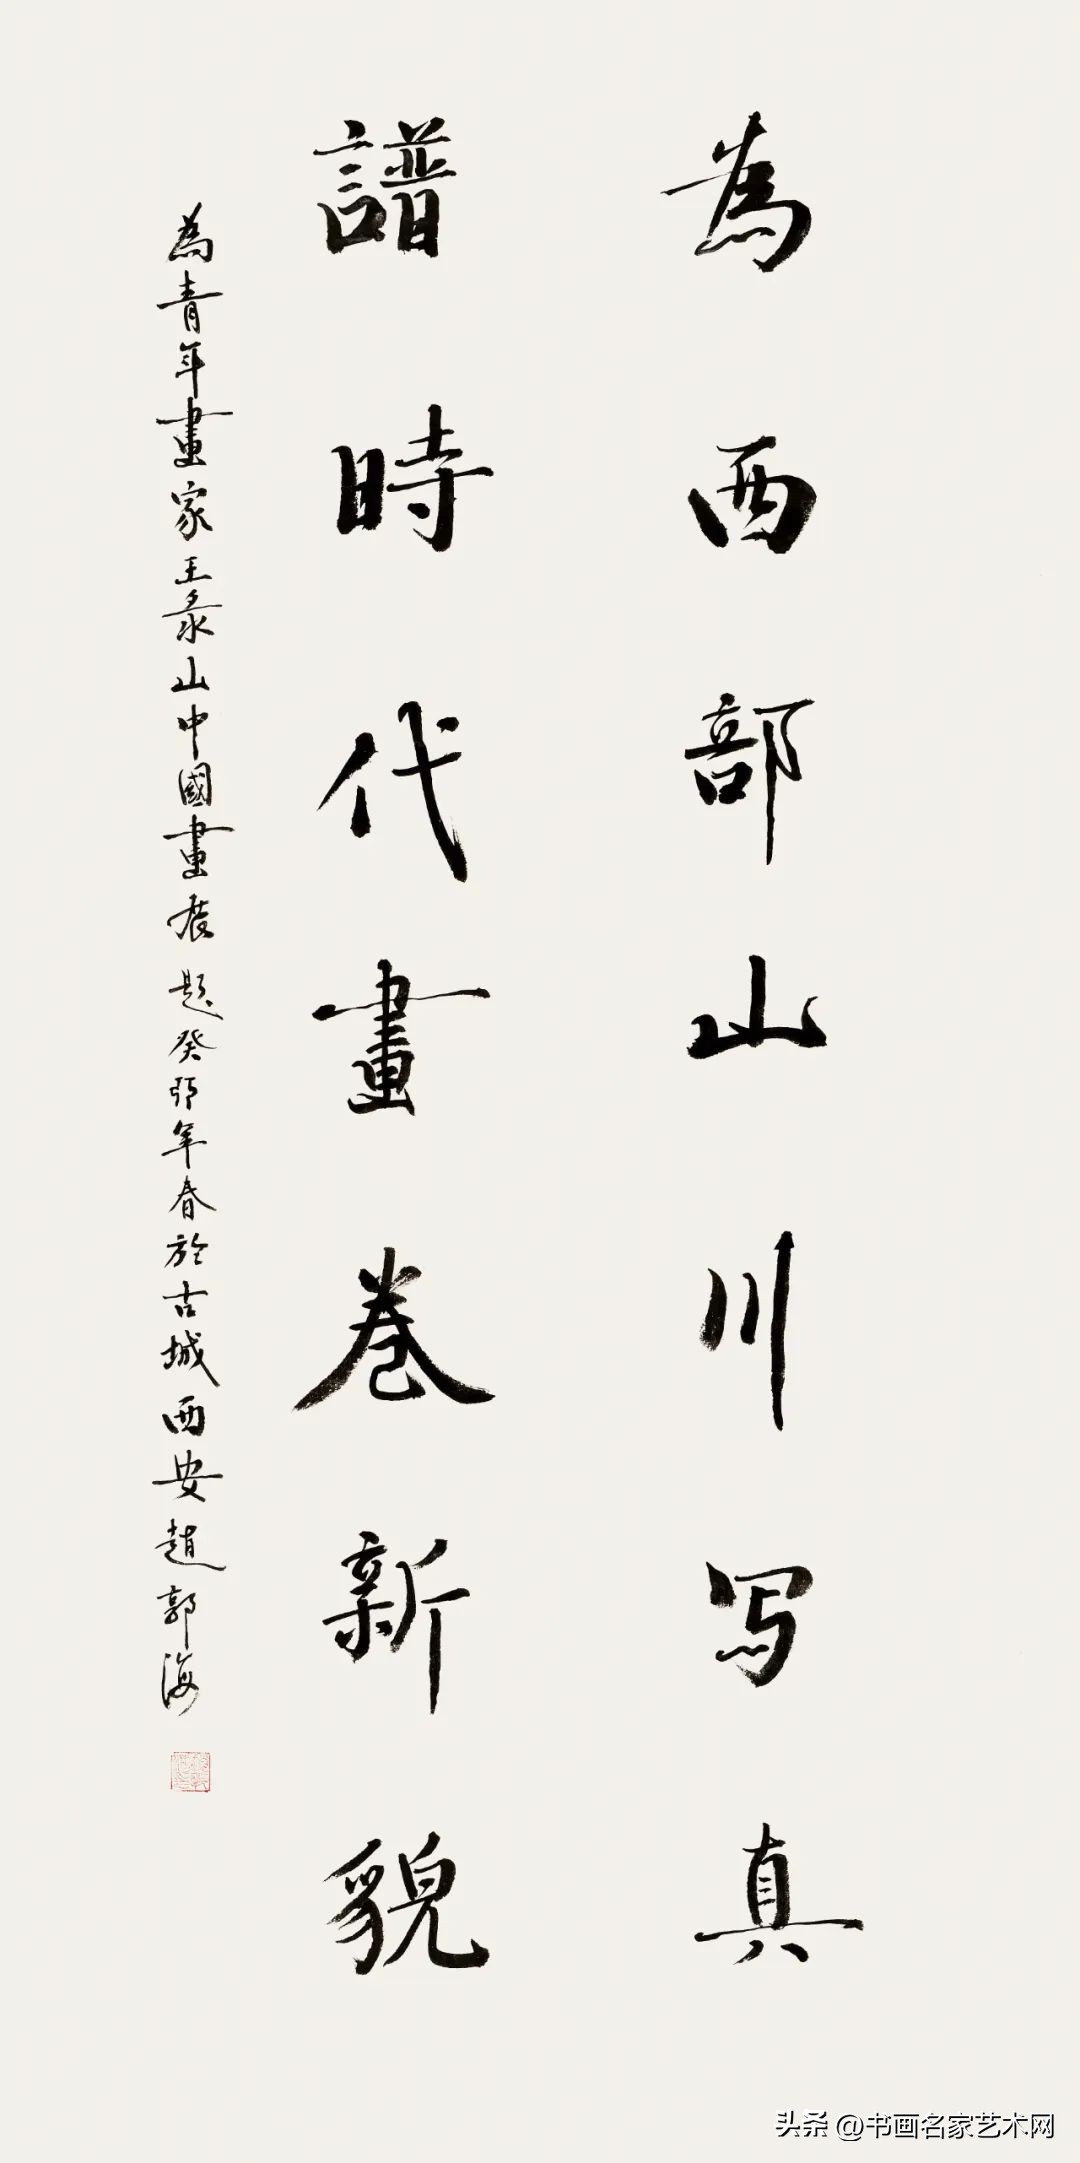 為西部山川写真
譜時代畫卷新貌
為青年畫家王彔山中國畫展題癸卯年春於古城西安趙郭海
头条 @书画名家艺术网